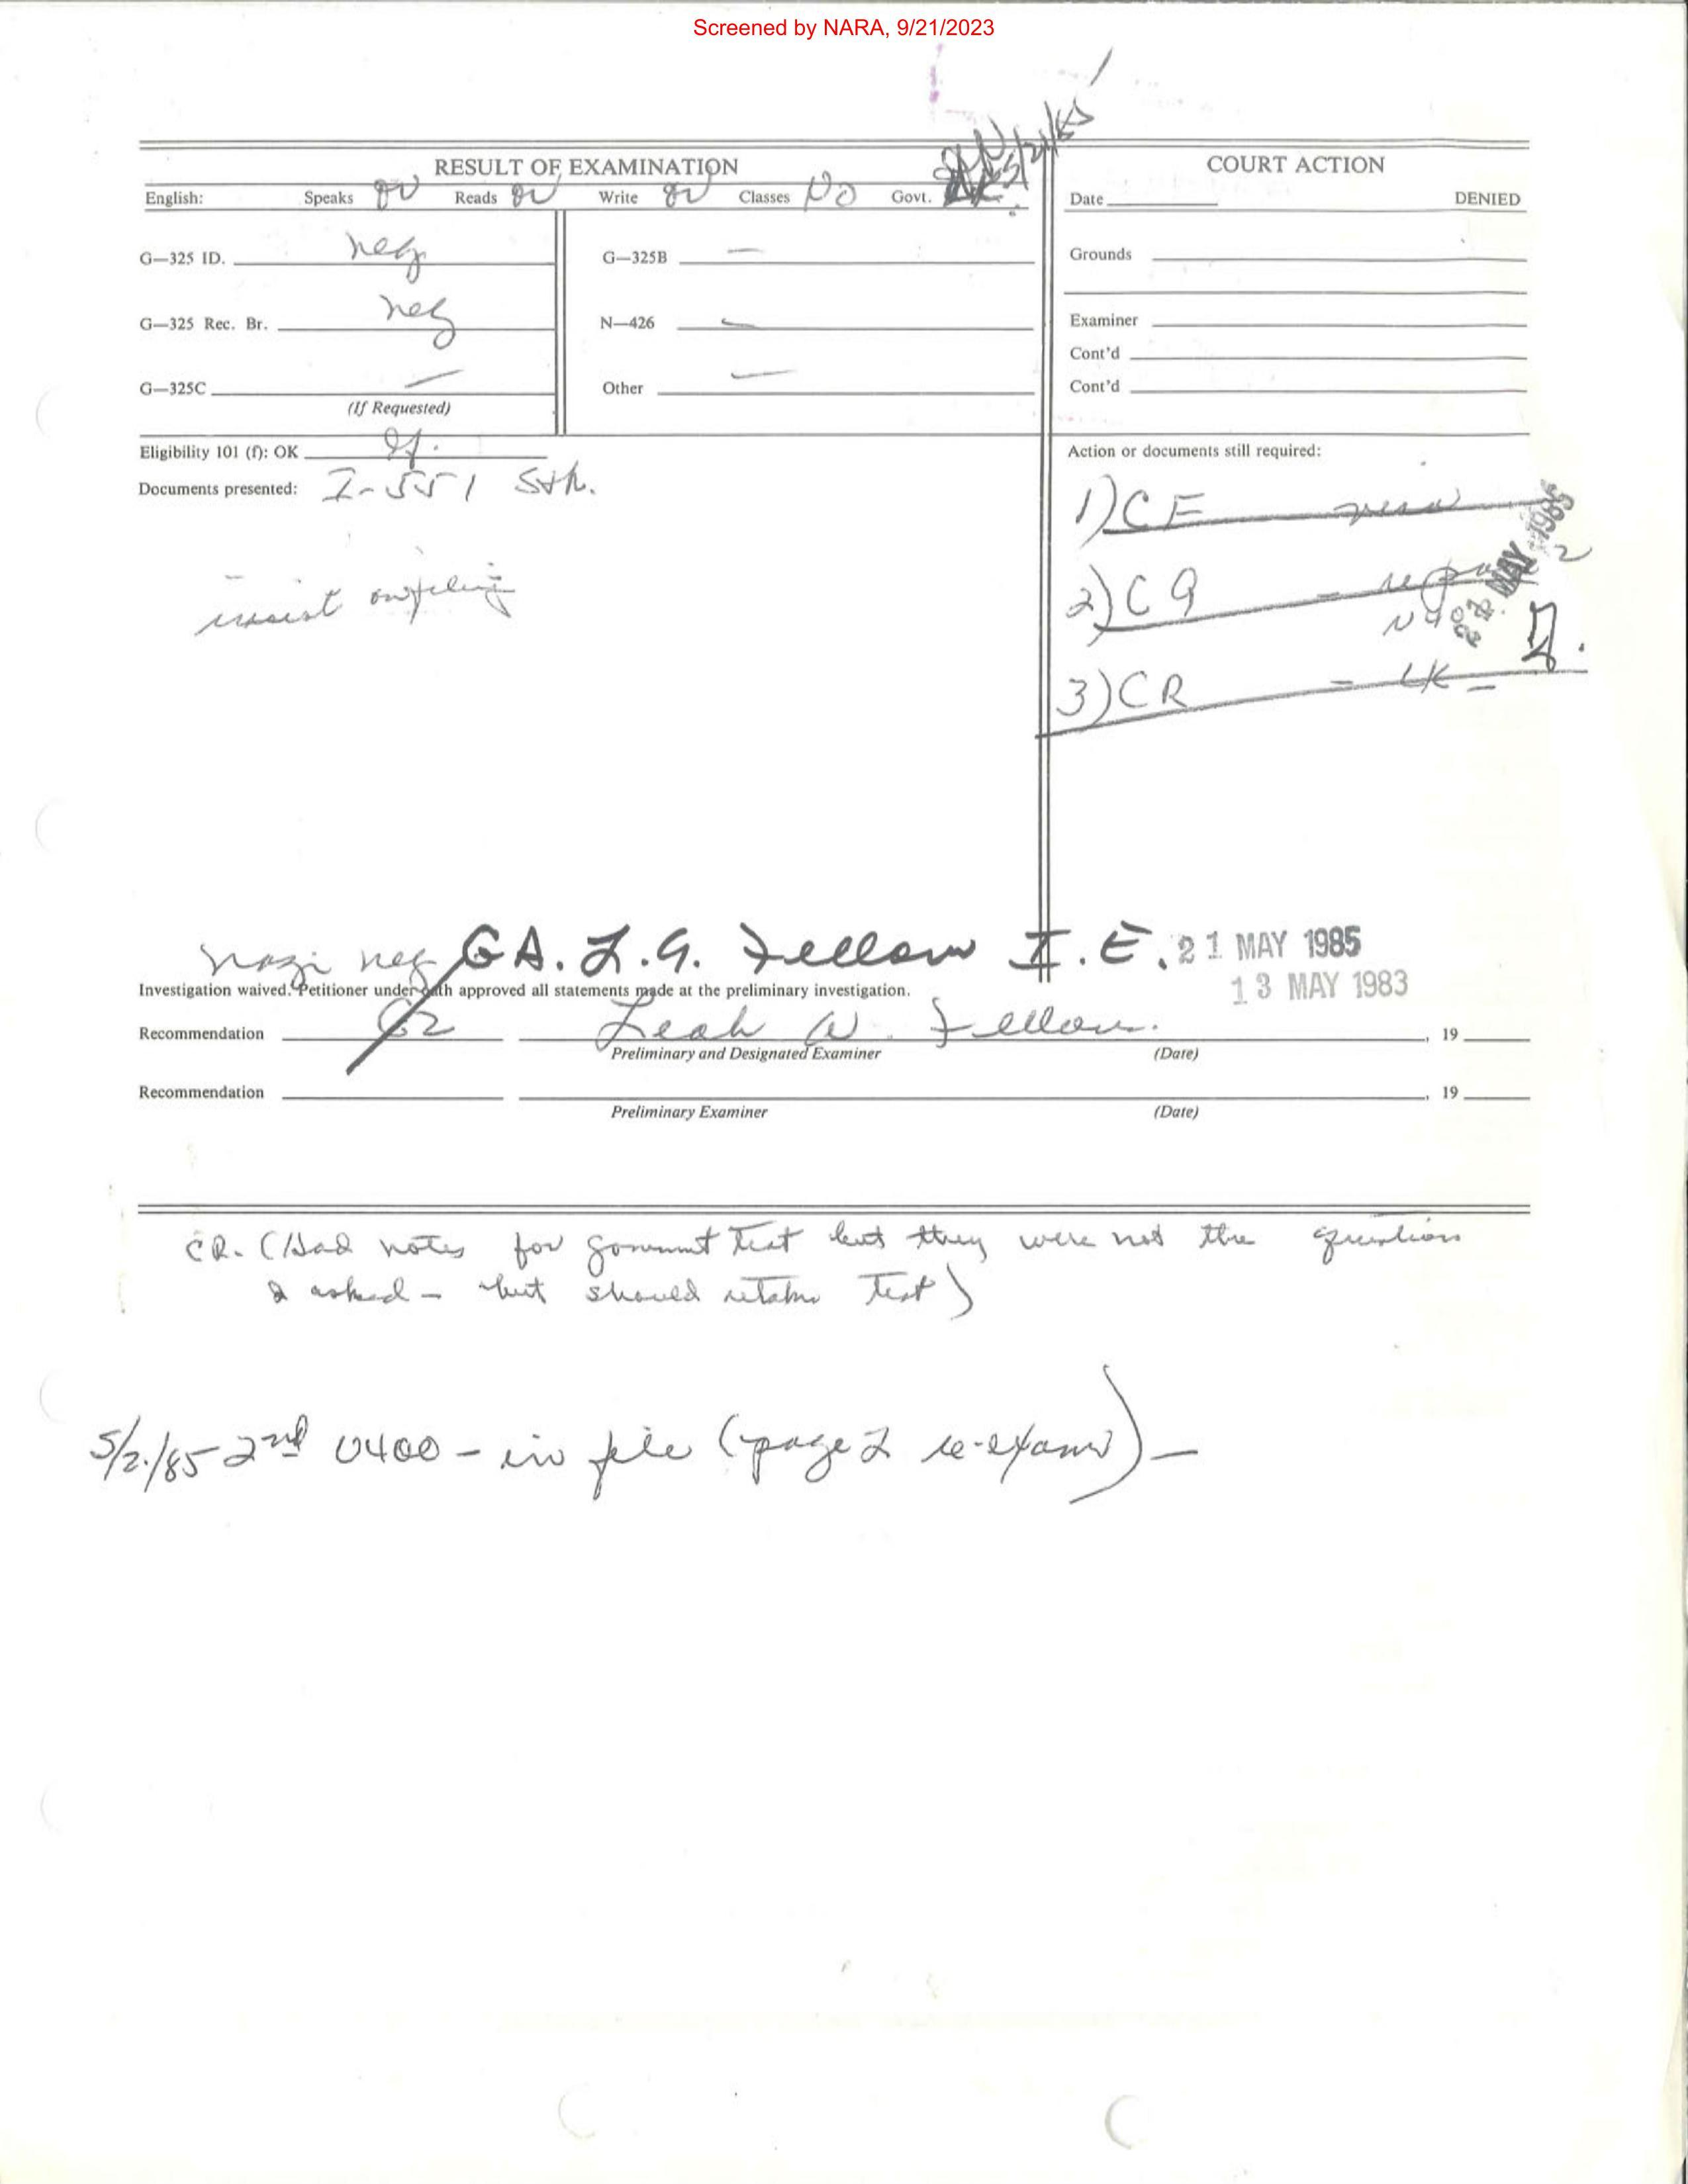 Screened by NARA, 9/21/2023
RESULT OF EXAMINATION
English: Speaks Reads Write Classes No Govt.
G—325 ID. neg G—325B —
G—325 Rec. Br. neg N—426 —
G—325C — Other —
(If Requested)
Eligibility 101 (f): OK
Documents presented: I-551
insist on filing
COURT ACTION
Date DENIED
Grounds
Examiner
Cont'd
Cont'd
Action or documents still required:
1) CF
2) CQ
22 MAY 1985
3) CR
nazi neg GA. L.G. Fellow I.E. 21 MAY 1985
Investigation waived. Petitioner under oath approved all statements made at the preliminary investigation.
13 MAY 1983
Recommendation Leah W. Fellow. , 19
Preliminary and Designated Examiner (Date)
Recommendation , 19
Preliminary Examiner (Date)
CR. (Had notes for test but they were not the questions
I asked – but should retake test)
in file (page 2 re-exam) –